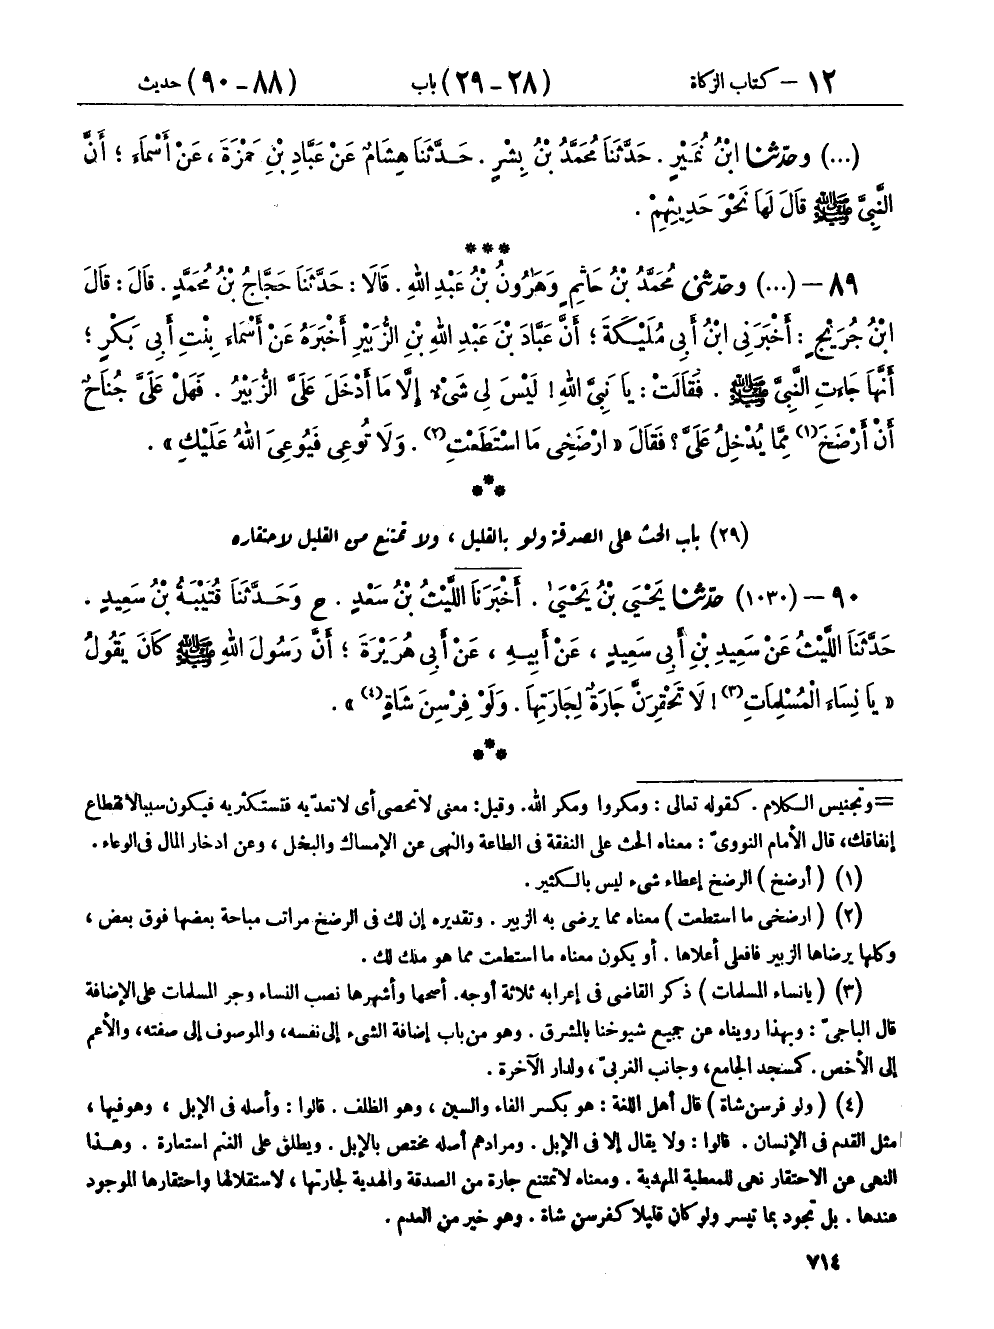 ١٢ – كتاب الزكاة (٢٨ – ٢٩) باب (٨٨ – ٩٠) حديث
(...) وحَدَّثَنَا ابْنُ نُمَيْرٍ . حَدَّثَنَا مُحَمَّدُ بْنُ بِشْرٍ . حَدَّثَنَا هِشَامٌ عَنْ عَبَّادِ بْنِ حَمْزَةَ ، عَنْ أَسْمَاءَ ؛ أَنَّ
النَّبِيَّ ﷺ قَالَ لَهَا نَحْوَ حَدِيثِهِمْ .
***
٨٩ – (...) وحَدَّثَنِي مُحَمَّدُ بْنُ حَاتِمٍ وَهَرُونُ بْنُ عَبْدِ اللهِ . قَالَا : حَدَّثَنَا حَجَّاجُ بْنُ مُحَمَّدٍ . قَالَ : قَالَ
ابْنُ جُرَيْجٍ : أَخْبَرَنِي ابْنُ أَبِي مُلَيْكَةَ ؛ أَنَّ عَبَّادَ بْنَ عَبْدِ اللهِ بْنِ الزُّبَيْرِ أَخْبَرَهُ عَنْ أَسْمَاءَ بِنْتِ أَبِي بَكْرٍ ؛
أَنَّهَا جَاءَتِ النَّبِيَّ ﷺ . فَقَالَتْ : يَا نَبِيَّ اللهِ ! لَيْسَ لِي شَيْءٌ إِلَّا مَا أَدْخَلَ عَلَيَّ الزُّبَيْرُ . فَهَلْ عَلَيَّ جُنَاحٌ
أَنْ أَرْضَخَ(١) مِمَّا يُدْخِلُ عَلَيَّ ؟ فَقَالَ « ارْضَخِي مَا اسْتَطَعْتِ(٢) . وَلَا تُوعِي فَيُوعِيَ اللهُ عَلَيْكِ » .
***
(٢٩) باب الحث على الصدقة ولو بالقليل ، ولا تمتنع من القليل لاحتقاره
٩٠ – (١٠٣٠) حَدَّثَنَا يَحْيَى بْنُ يَحْيَىٰ . أَخْبَرَنَا اللَّيْثُ بْنُ سَعْدٍ . ح وَحَدَّثَنَا قُتَيْبَةُ بْنُ سَعِيدٍ .
حَدَّثَنَا اللَّيْثُ عَنْ سَعِيدِ بْنِ أَبِي سَعِيدٍ ، عَنْ أَبِيهِ ، عَنْ أَبِي هُرَيْرَةَ ؛ أَنَّ رَسُولَ اللهِ ﷺ كَانَ يَقُولُ
« يَا نِسَاءَ الْمُسْلِمَاتِ(٣) ! لَا تَحْقِرَنَّ جَارَةٌ لِجَارَتِهَا . وَلَوْ فِرْسِنَ شَاةٍ(٤) » .
***
= وتجنيس الكلام . كقوله تعالى : ومكروا ومكر الله. وقيل: معنى لا تحصى أى لا تعديه فتستكثريه فيكون سببا لانقطاع
إنفاقك، قال الأمام النووىّ : معناه الحث على النفقة فى الطاعة والنهى عن الإمساك والبخل ، وعن ادخار المال فى الوعاء .
(١) ( أرضخ ) الرضخ إعطاء شىء ليس بالكثير .
(٢) ( ارضخى ما استطعت ) معناه مما يرضى به الزبير . وتقديره إن لك فى الرضخ مراتب مباحة بعضها فوق بعض ،
وكلها يرضاها الزبير فافعلى أعلاها . أو يكون معناه ما استطعت مما هو ملك لك .
(٣) ( يا نساء المسلمات ) ذكر القاضى فى إعرابه ثلاثة أوجه. أصحها وأشهرها نصب النساء وجر المسلمات على الإضافة
قال الباجىّ : وبهذا رويناه عن جميع شيوخنا بالمشرق . وهو من باب إضافة الشىء إلى نفسه، والموصوف إلى صفته، والأعم
إلى الأخص . كمسجد الجامع، وجانب الغربىّ ، ولدار الآخرة .
(٤) ( ولو فرسن شاة ) قال أهل اللغة : هو بكسر الفاء والسين ، وهو الظلف . قالوا : وأصله فى الإبل ، وهو فيها ،
مثل القدم فى الإنسان . قالوا : ولا يقال إلا فى الإبل . ومرادهم أصله مختص بالإبل . ويطلق على الغنم استعارة . وهذا
النهى عن الاحتقار نهى للمعطية المهدية . ومعناه لا تمتنع جارة من الصدقة والهدية لجارتها ، لاستقلالها واحتقارها الموجود
عندها . بل تجود بما تيسر ولو كان قليلا كفرسن شاة . وهو خير من العدم .
٧١٤